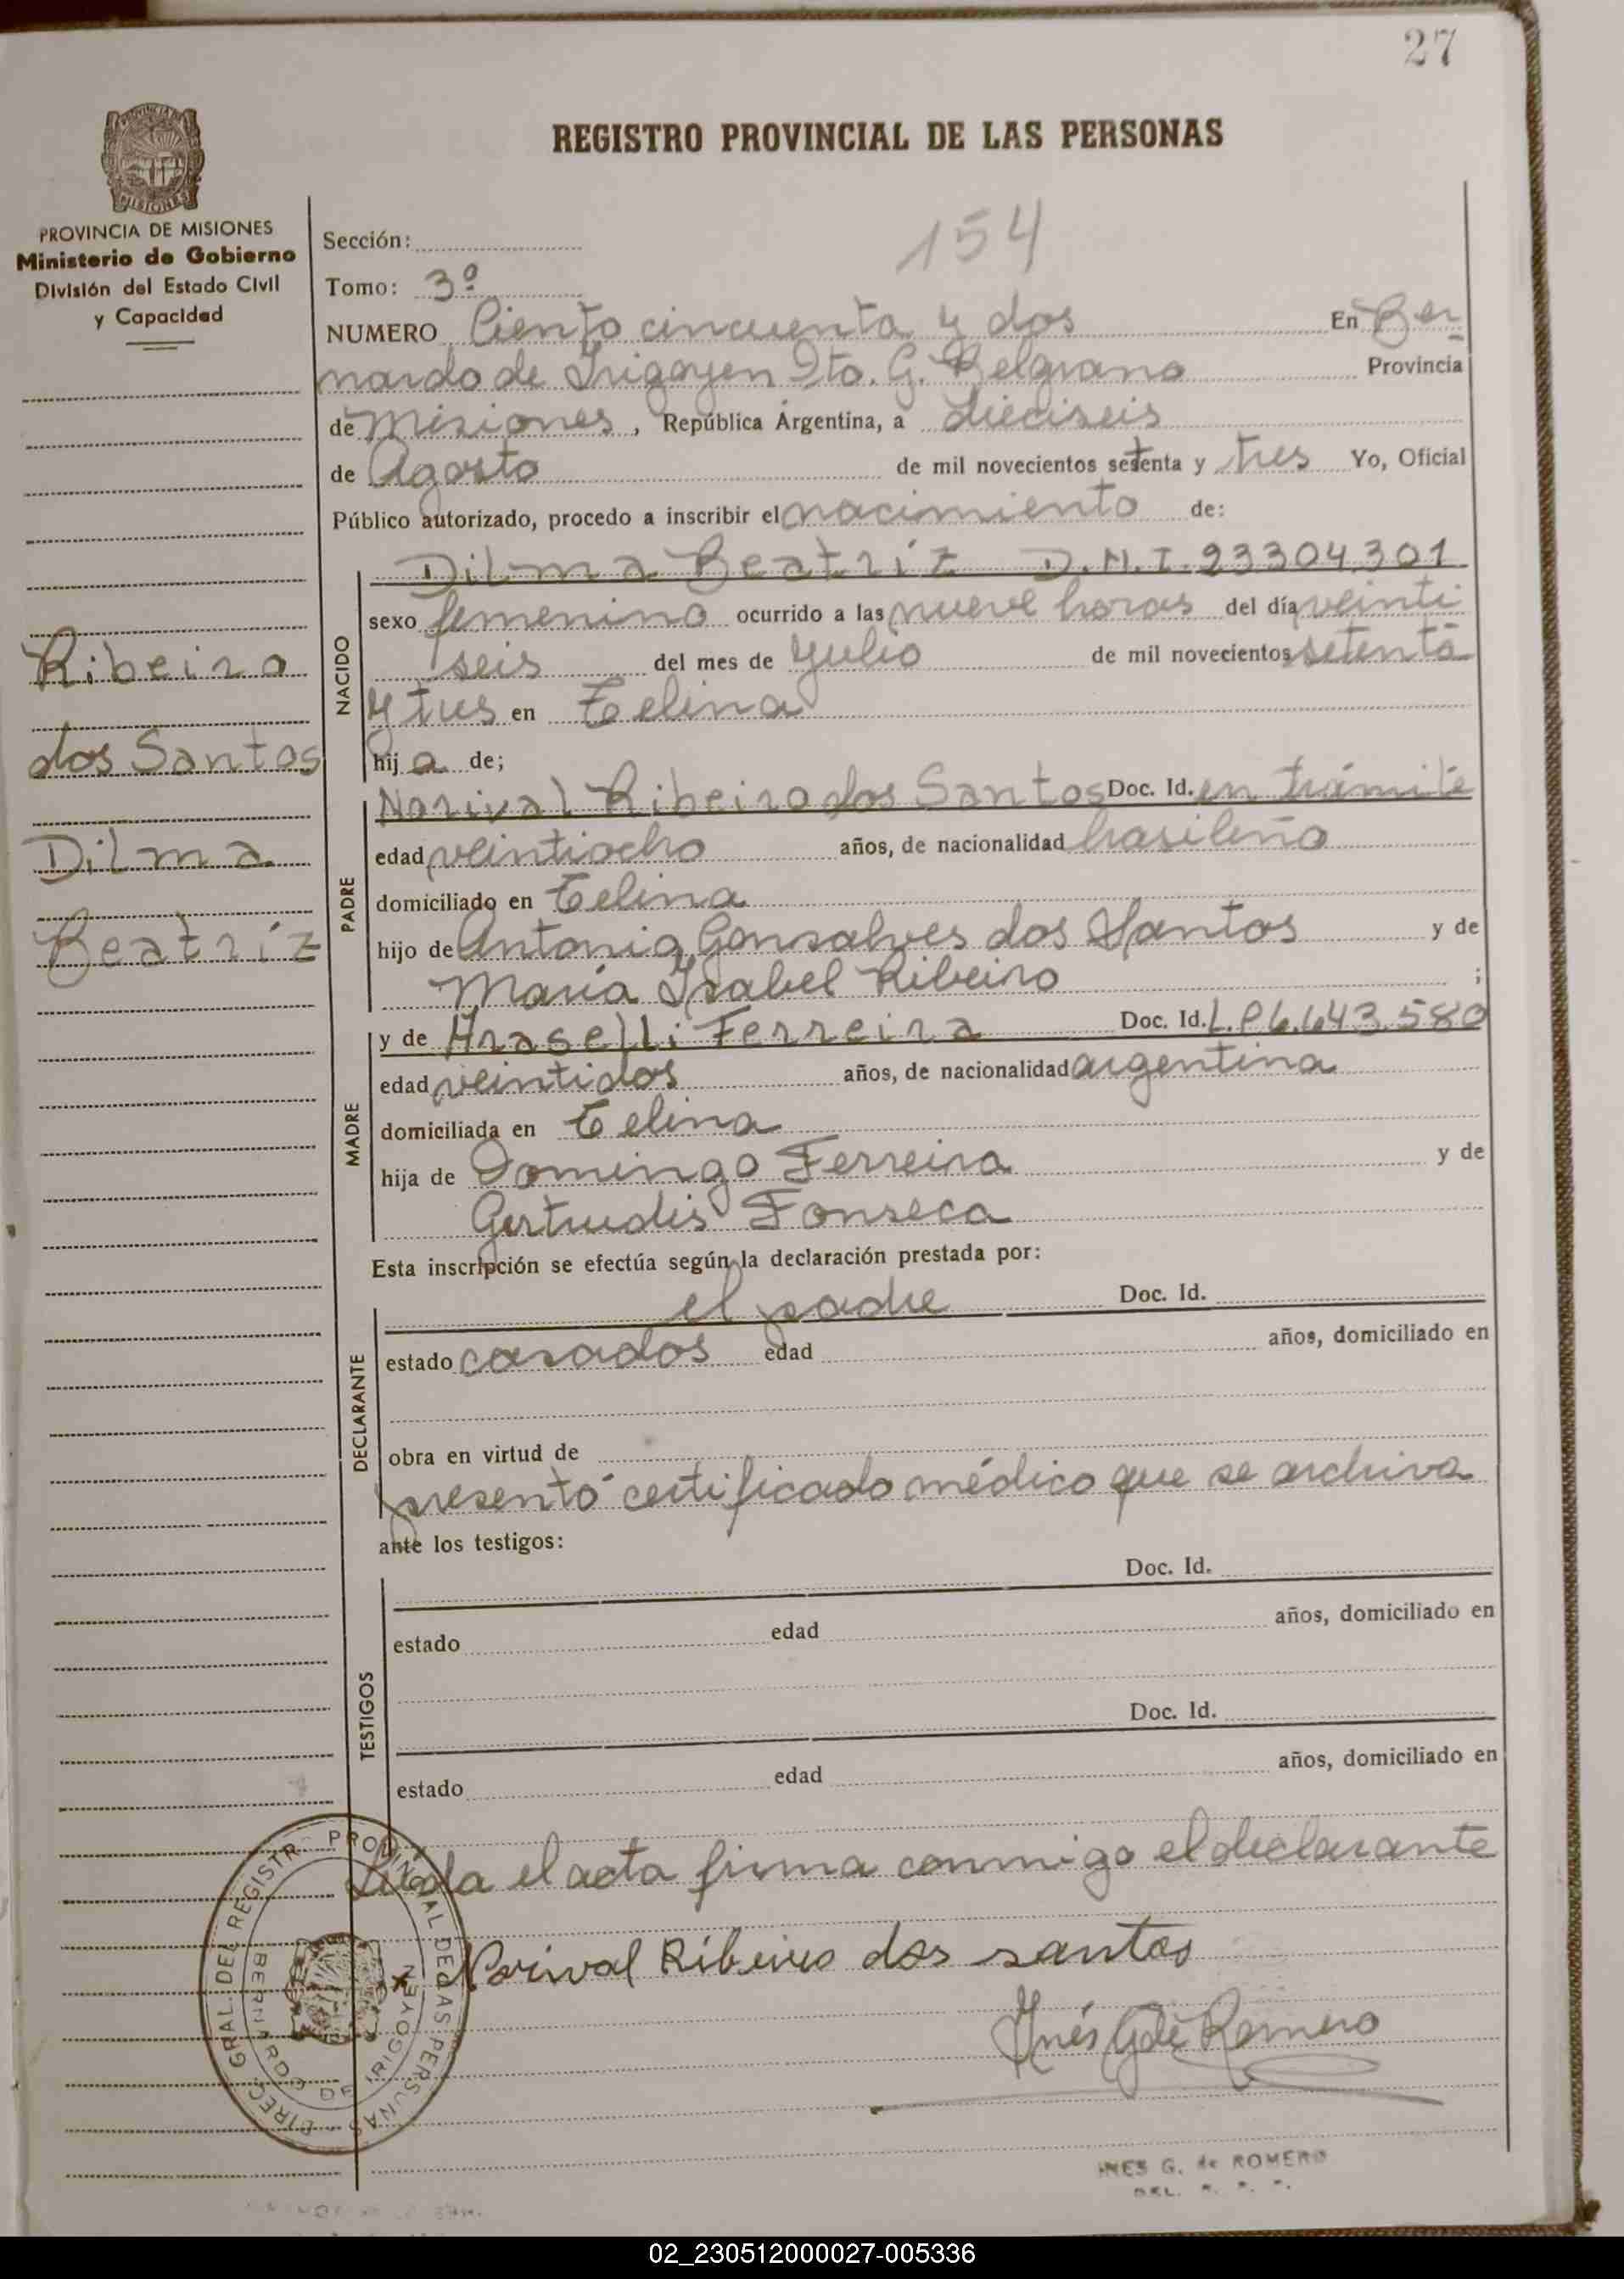 27
REGISTRO PROVINCIAL DE LAS PERSONAS
PROVINCIA DE MISIONES
Ministerio de Gobierno
División del Estado Civil
y Capacidad
154
Sección:
Tomo: 3º
NUMERO Ciento cincuenta y dos En Ber
nardo de Irigoyen Dto. G. Belgrano Provincia
de Misiones, República Argentina, a dieciseis
de Agosto de mil novecientos setenta y tres Yo, Oficial
Público autorizado, procedo a inscribir el nacimiento de:
Dilma Beatríz D.N.I. 23304.301
NACIDO
sexo femenino ocurrido a las nueve horas del día veinti
seis del mes de Julio de mil novecientos setenta
y tres en Telina
hij a de;
Ribeiro
dos Santos
Dilma
Beatríz
PADRE
Norival Ribeiro dos Santos Doc. Id. en trámite
edad veintiocho años, de nacionalidad brasileño
domiciliado en Telina
hijo de Antonio Gonsalves dos Santos y de
María Isabel Ribeiro ;
MADRE
y de Araselli Ferreira Doc. Id. L.P 6.643.580
edad veintidos años, de nacionalidad argentina
domiciliada en Telina
hija de Domingo Ferreira y de
Gertrudis Fonseca
Esta inscripción se efectúa según la declaración prestada por:
DECLARANTE
el padre Doc. Id.
estado casados edad años, domiciliado en
obra en virtud de
presentó certificado médico que se archiva
ante los testigos:
TESTIGOS
Doc. Id.
estado edad años, domiciliado en
Doc. Id.
estado edad años, domiciliado en
Leída el acta firma conmigo el declarante
x Norival Ribeiro dos santos
Inés G de Romero
DIREC. GRAL. DEL REGISTR PROVINCIAL DE LAS PERSONAS
BERNARDO DE IRIGOYEN
INES G. de ROMERO
DEL.
02_230512000027-005336